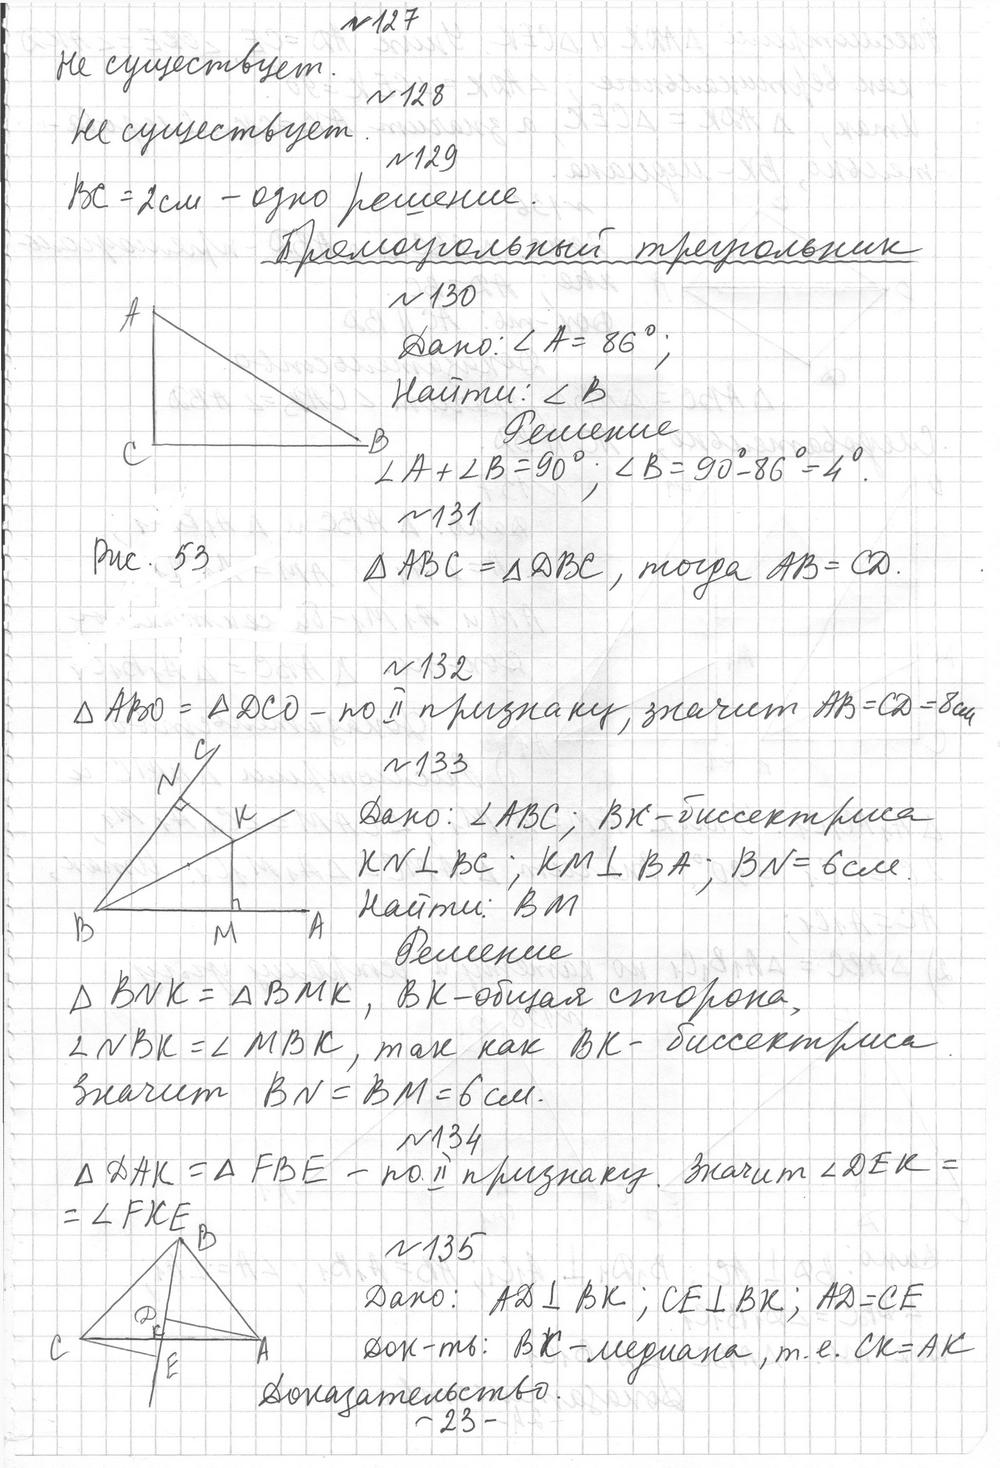 №127
Не существует.
№128
Не существует.
№129
BC = 2см – одно решение.
Прямоугольный треугольник
№130
A
C
B
Дано: ∠A = 86°;
Найти: ∠B
Решение
∠A + ∠B = 90°; ∠B = 90° - 86° = 4°.
№131
Рис. 53
△ABC = △DBC, тогда AB = CD.
№132
△ABO = △DCO – по II признаку, значит AB = CD = 8см
№133
C
N
K
B
M
A
Дано: ∠ABC; BK – биссектриса
KN ⊥ BC; KM ⊥ BA; BN = 6см.
Найти: BM
Решение
△BNK = △BMK, BK – общая сторона,
∠NBK = ∠MBK, так как BK – биссектриса
Значит BN = BM = 6см.
№134
△DAK = △FBE – по II признаку. Значит ∠DEK =
= ∠FKE
B
D
K
C
E
A
№135
Дано: AD ⊥ BK; CE ⊥ BK; AD = CE
Док-ть: BK – медиана, т.е. CK = AK
Доказательство.
-23-